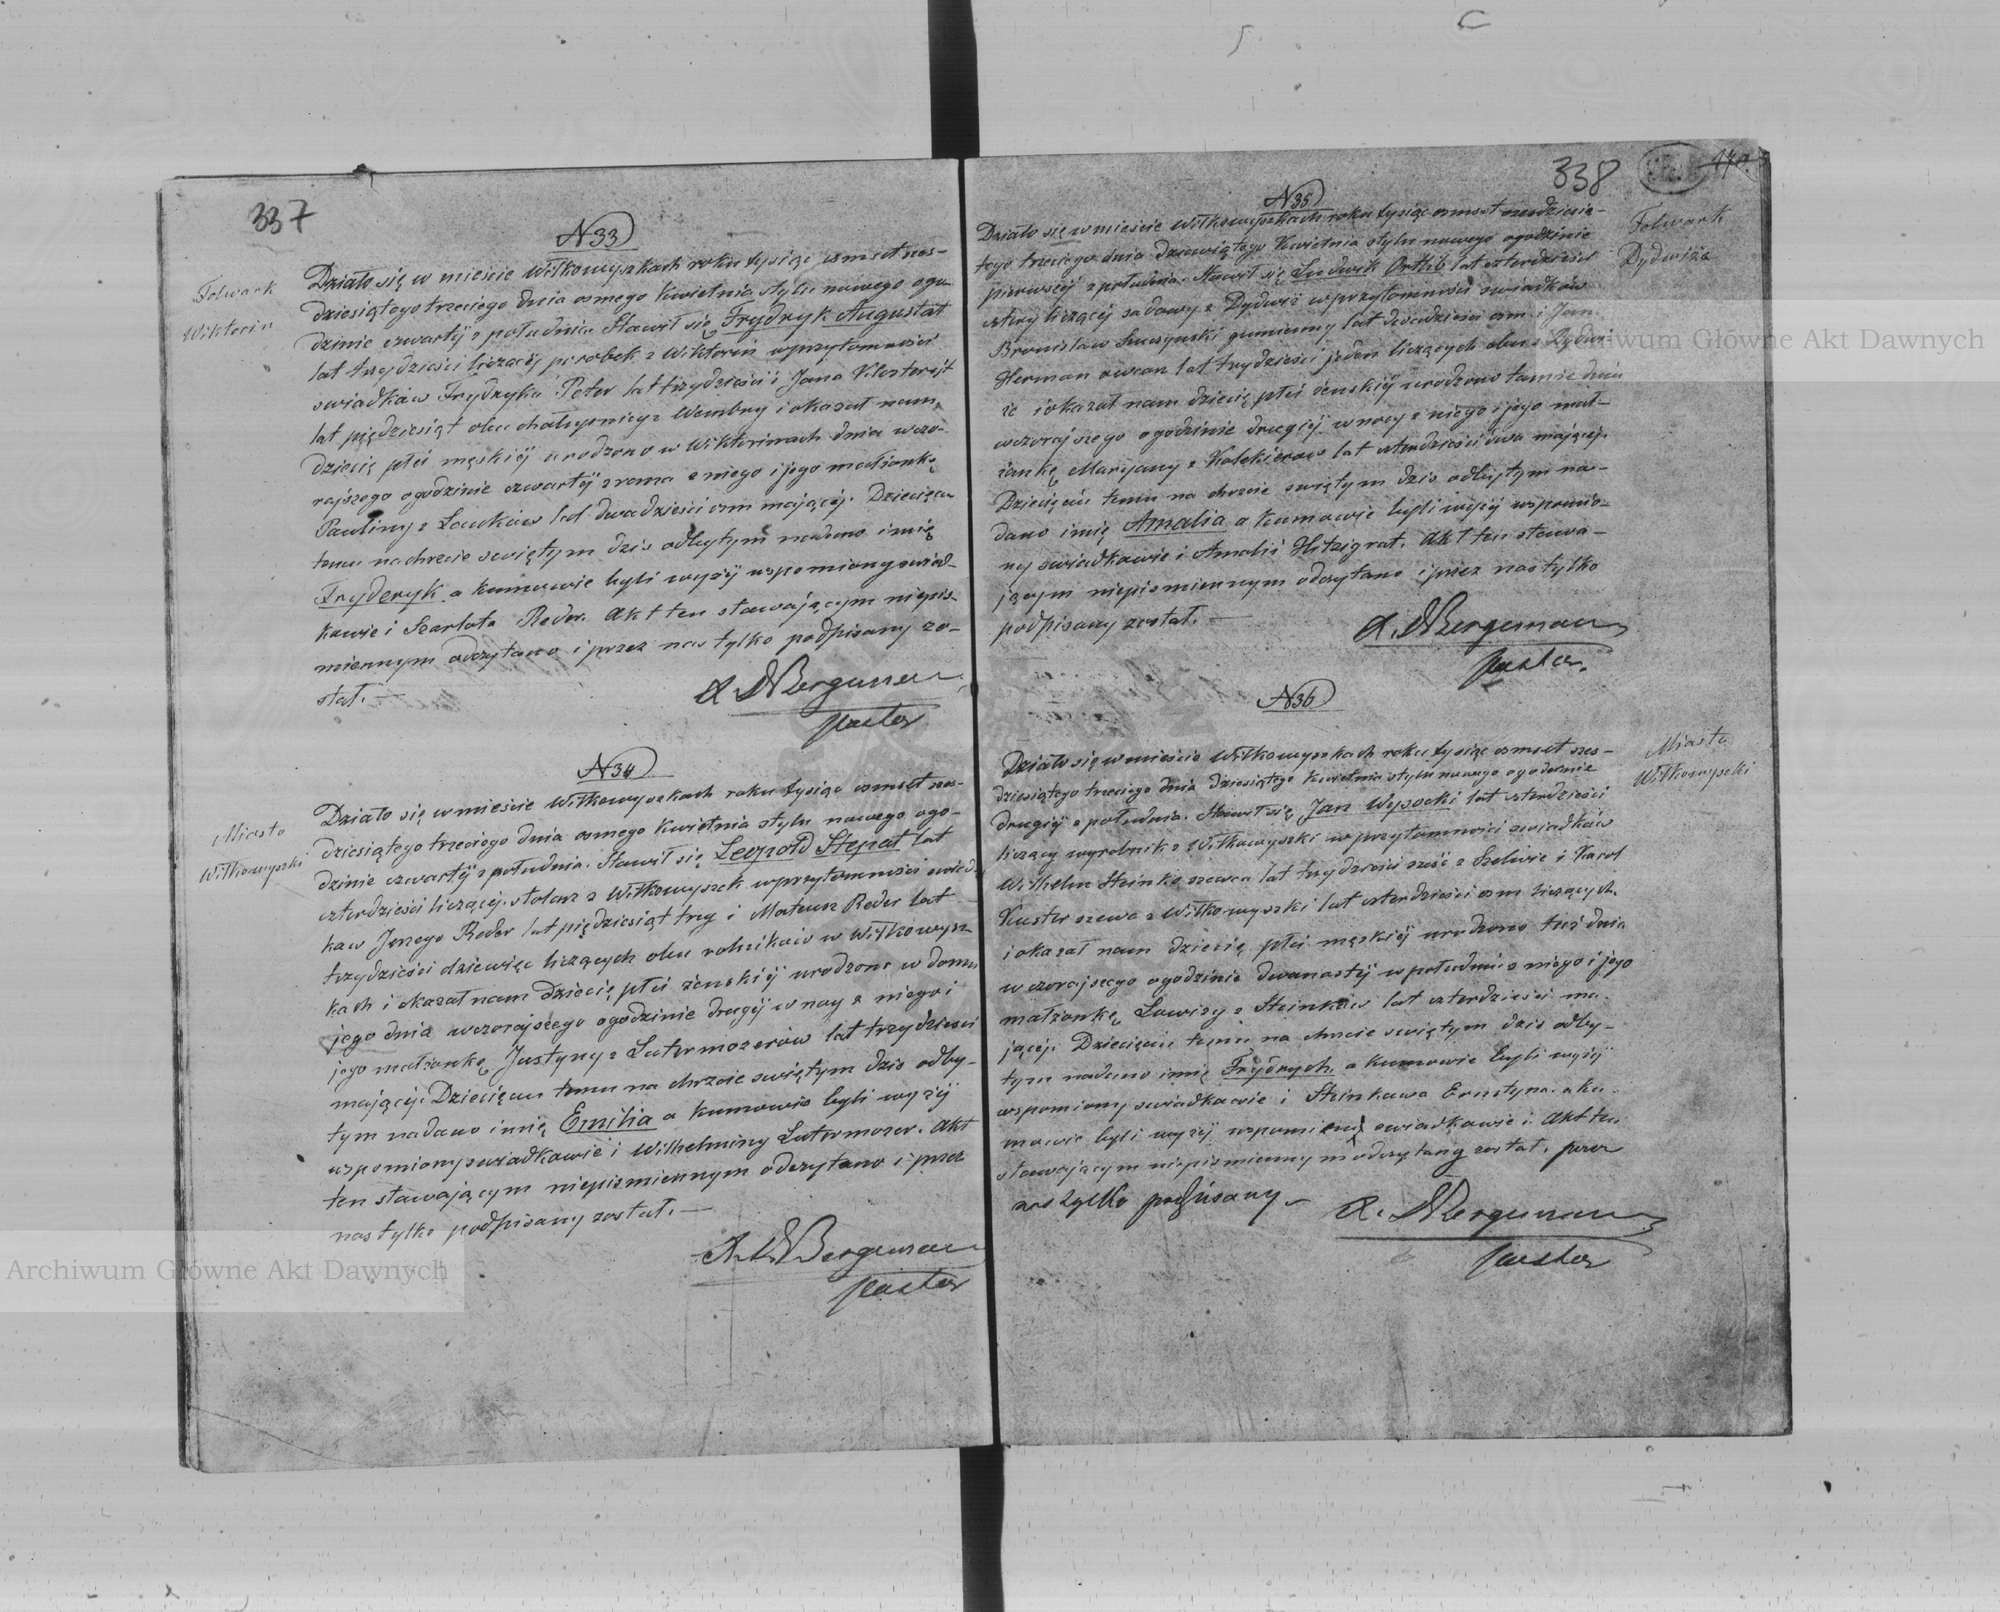 337
N 33
Folwark
Wiktorin
Działo się w mieście Wiłkowyszkach roku tysiąc osmset szes-
dziesiątego trzeciego dnia osmego Kwietnia stylu nowego ogo-
dzinie czwartÿ z południa Stawił się Frydryk Augustat
lat trzydzieści liczącÿ parobek z Wiktorin w przytomności
swiadków Frydryka Peter lat trzydzieści i Jana
lat pięćdziesiąt obu chałupnicy z i okazał nam
dziecię płci męskiÿ urodzono w Wiktorinach dnia wczo-
rajszego ogodzinie czwartÿ zrana z niego i jego małżonki
Pauliny z lat dwadzieścia osm mającÿ. Dziecięciu
temu na chrzcie świętym dzis odbytym nadano imię
Fryderyk a kumowie byli wyzÿ wspomiony swiad-
kowie i Szarlota Reder. Akt ten stawającym niepis-
miennym odczytano i przez nas tylko podpisany zo-
stał. —
Bergmann
pastor
N 34
Miasto
Wiłkowyszki
Działo się w mieście Wiłkowyszkach roku tysiąc osmset szes-
dziesiątego trzeciego dnia osmego Kwietnia stylu nowego ogo-
dzinie czwartÿ z południa. Stawił się Leopold Stepat lat
czterdzieści liczącÿ stolarz z Wiłkowyszek w przytomności swiad-
kow Jerzego Reder lat pięćdziesiąt trzy i Mateusz Reder lat
trzydzieści dziewięc liczących obu rolników w Wiłkowysz-
kach i okazał nam dziecię płci zenskiÿ urodzone w domu
jego dnia wczorajszego ogodzinie drugÿ w nocy z niego i
jego małzonkę Justyny z Latermozerów lat trzydzieści
mającÿ. Dziecięciu temu na chrzcie swiętym dzis odby-
tym nadano imię Emilia a kumowie byli wyzÿ
wspomiony swiadkowie i Wilhelminy Latermozer. Akt
ten stawającym niepismiennym odczytano i przez
nas tylko podpisany został. —
Bergmann
pastor
338
N 35
Folwark
Dydwiże
Działo się w mieście Wiłkowyszkach roku tysiąc osmset szesdziesią-
tego trzeciego dnia dziewiątego Kwietnia stylu nowego ogodzinie
pierwszÿ z południa. Stawił się Ludwik Ortlib lat czterdzieści
cztery liczącÿ sadowy z Dydwiż w przytomności swiadków
Bronisław gumienny lat dwadzieścia osm i Jan
Herman owczarz lat trzydzieści jeden liczących obu z Dydwi-
że i okazał nam dziecię płci żenskiÿ urodzono tamże dnia
wczorajszego ogodzinie drugiÿ w nocy z niego i jego mał-
żankę Maryany z lat czterdzieści dwa mającÿ.
Dziecięciu temu na chrzcie swiętym dzis odbytym na-
dano imię Amalia a kumowie byli wyzÿ wspomio-
ny swiadkowie i Amalii Hitzigrat. Akt ten stawa-
jącym niepismiennym odczytano i przez nas tylko
podpisany został. —
Bergmann
pastor.
N 36
Miasto
Wiłkowyszki
Działo się w mieście Wiłkowyszkach roku tysiąc osmset szes-
dziesiątego trzeciego dnia dziesiątego Kwietnia stylu nowego ogodzinie
drugiÿ z południa. Stawił się Jan Wysocki lat czterdzieści
liczący wyrobnik z Wiłkowyszki w przytomności swiadków
Wilhelm Steinke szewca lat trzydzieści sześć z i Karol
Kuster szewc z Wiłkowyszki lat czterdzieści osm liczących.
i okazał nam dziecię płci męskiÿ urodzono tuż dnia
wczorajszego ogodzinie dwanastÿ w południe z niego i jego
małzonkę Lowizy z Steinków lat czterdzieści ma-
jącÿ. Dziecięciu temu na chrzcie swiętym dzis odby-
tym nadano imię Frydrych, a kumowie byli wyzÿ
wspomiony swiadkowie i Steinkowa Ernstyna. a ku-
mowie byli wyzÿ wspomieni swiadkowie i: Akt ten
stawającym niepismiennym odczytany został, przez
nas tylko podpisany —
Bergmann
pastor
Archiwum Główne Akt Dawnych
Archiwum Główne Akt Dawnych